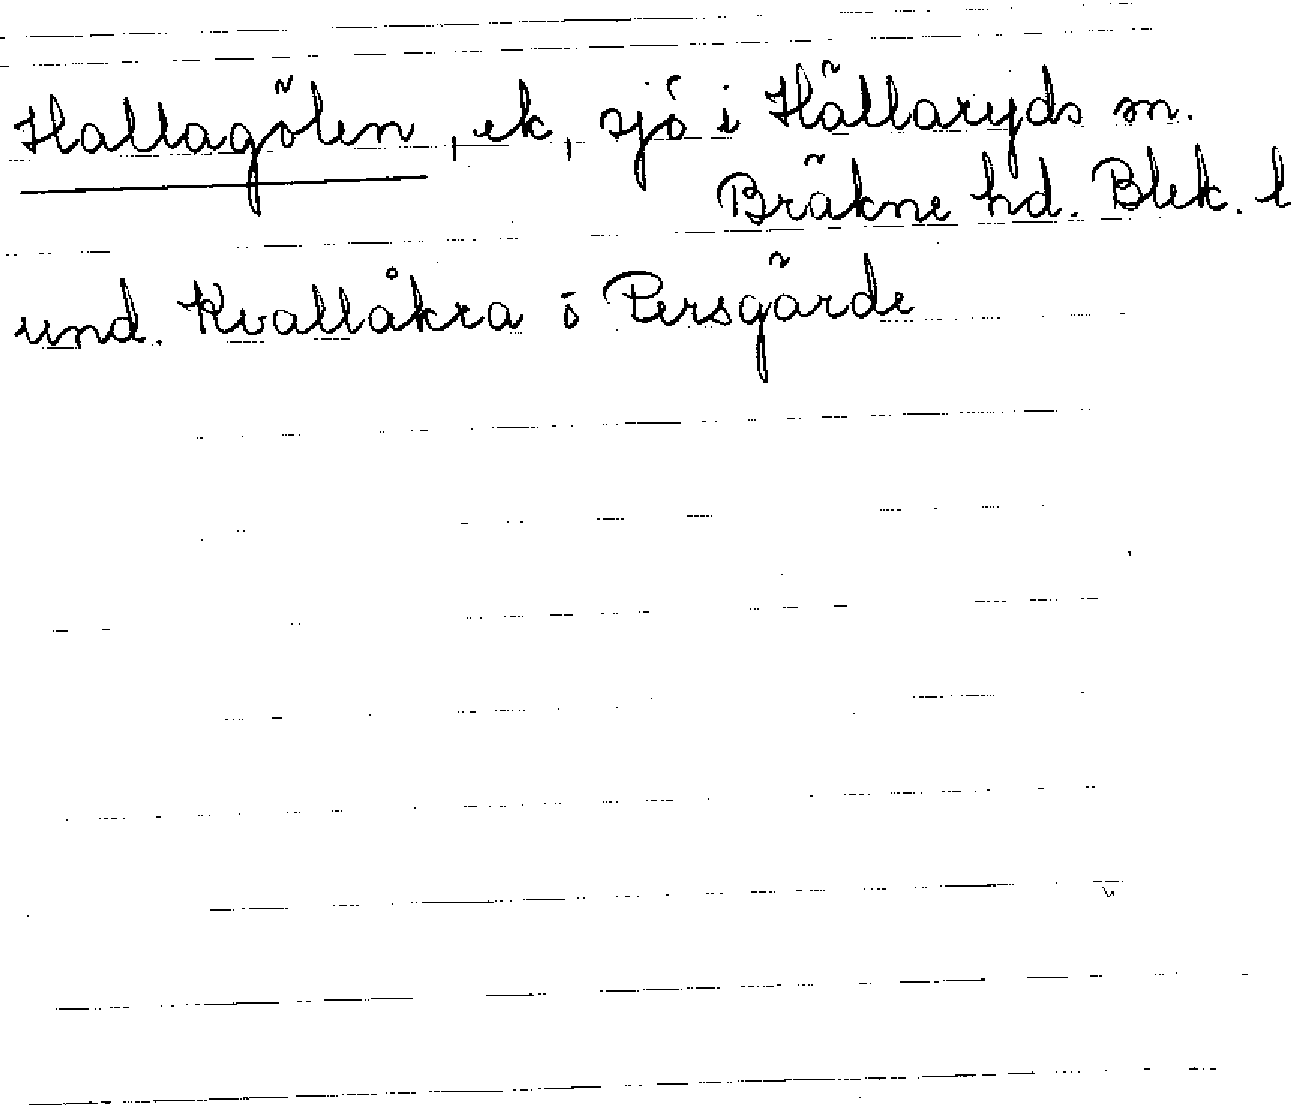 Hallagölen, ek, sjö i Hällaryds sn.
Bräkne hd. Blek. l
und. Kvallåkra ö Persgärde